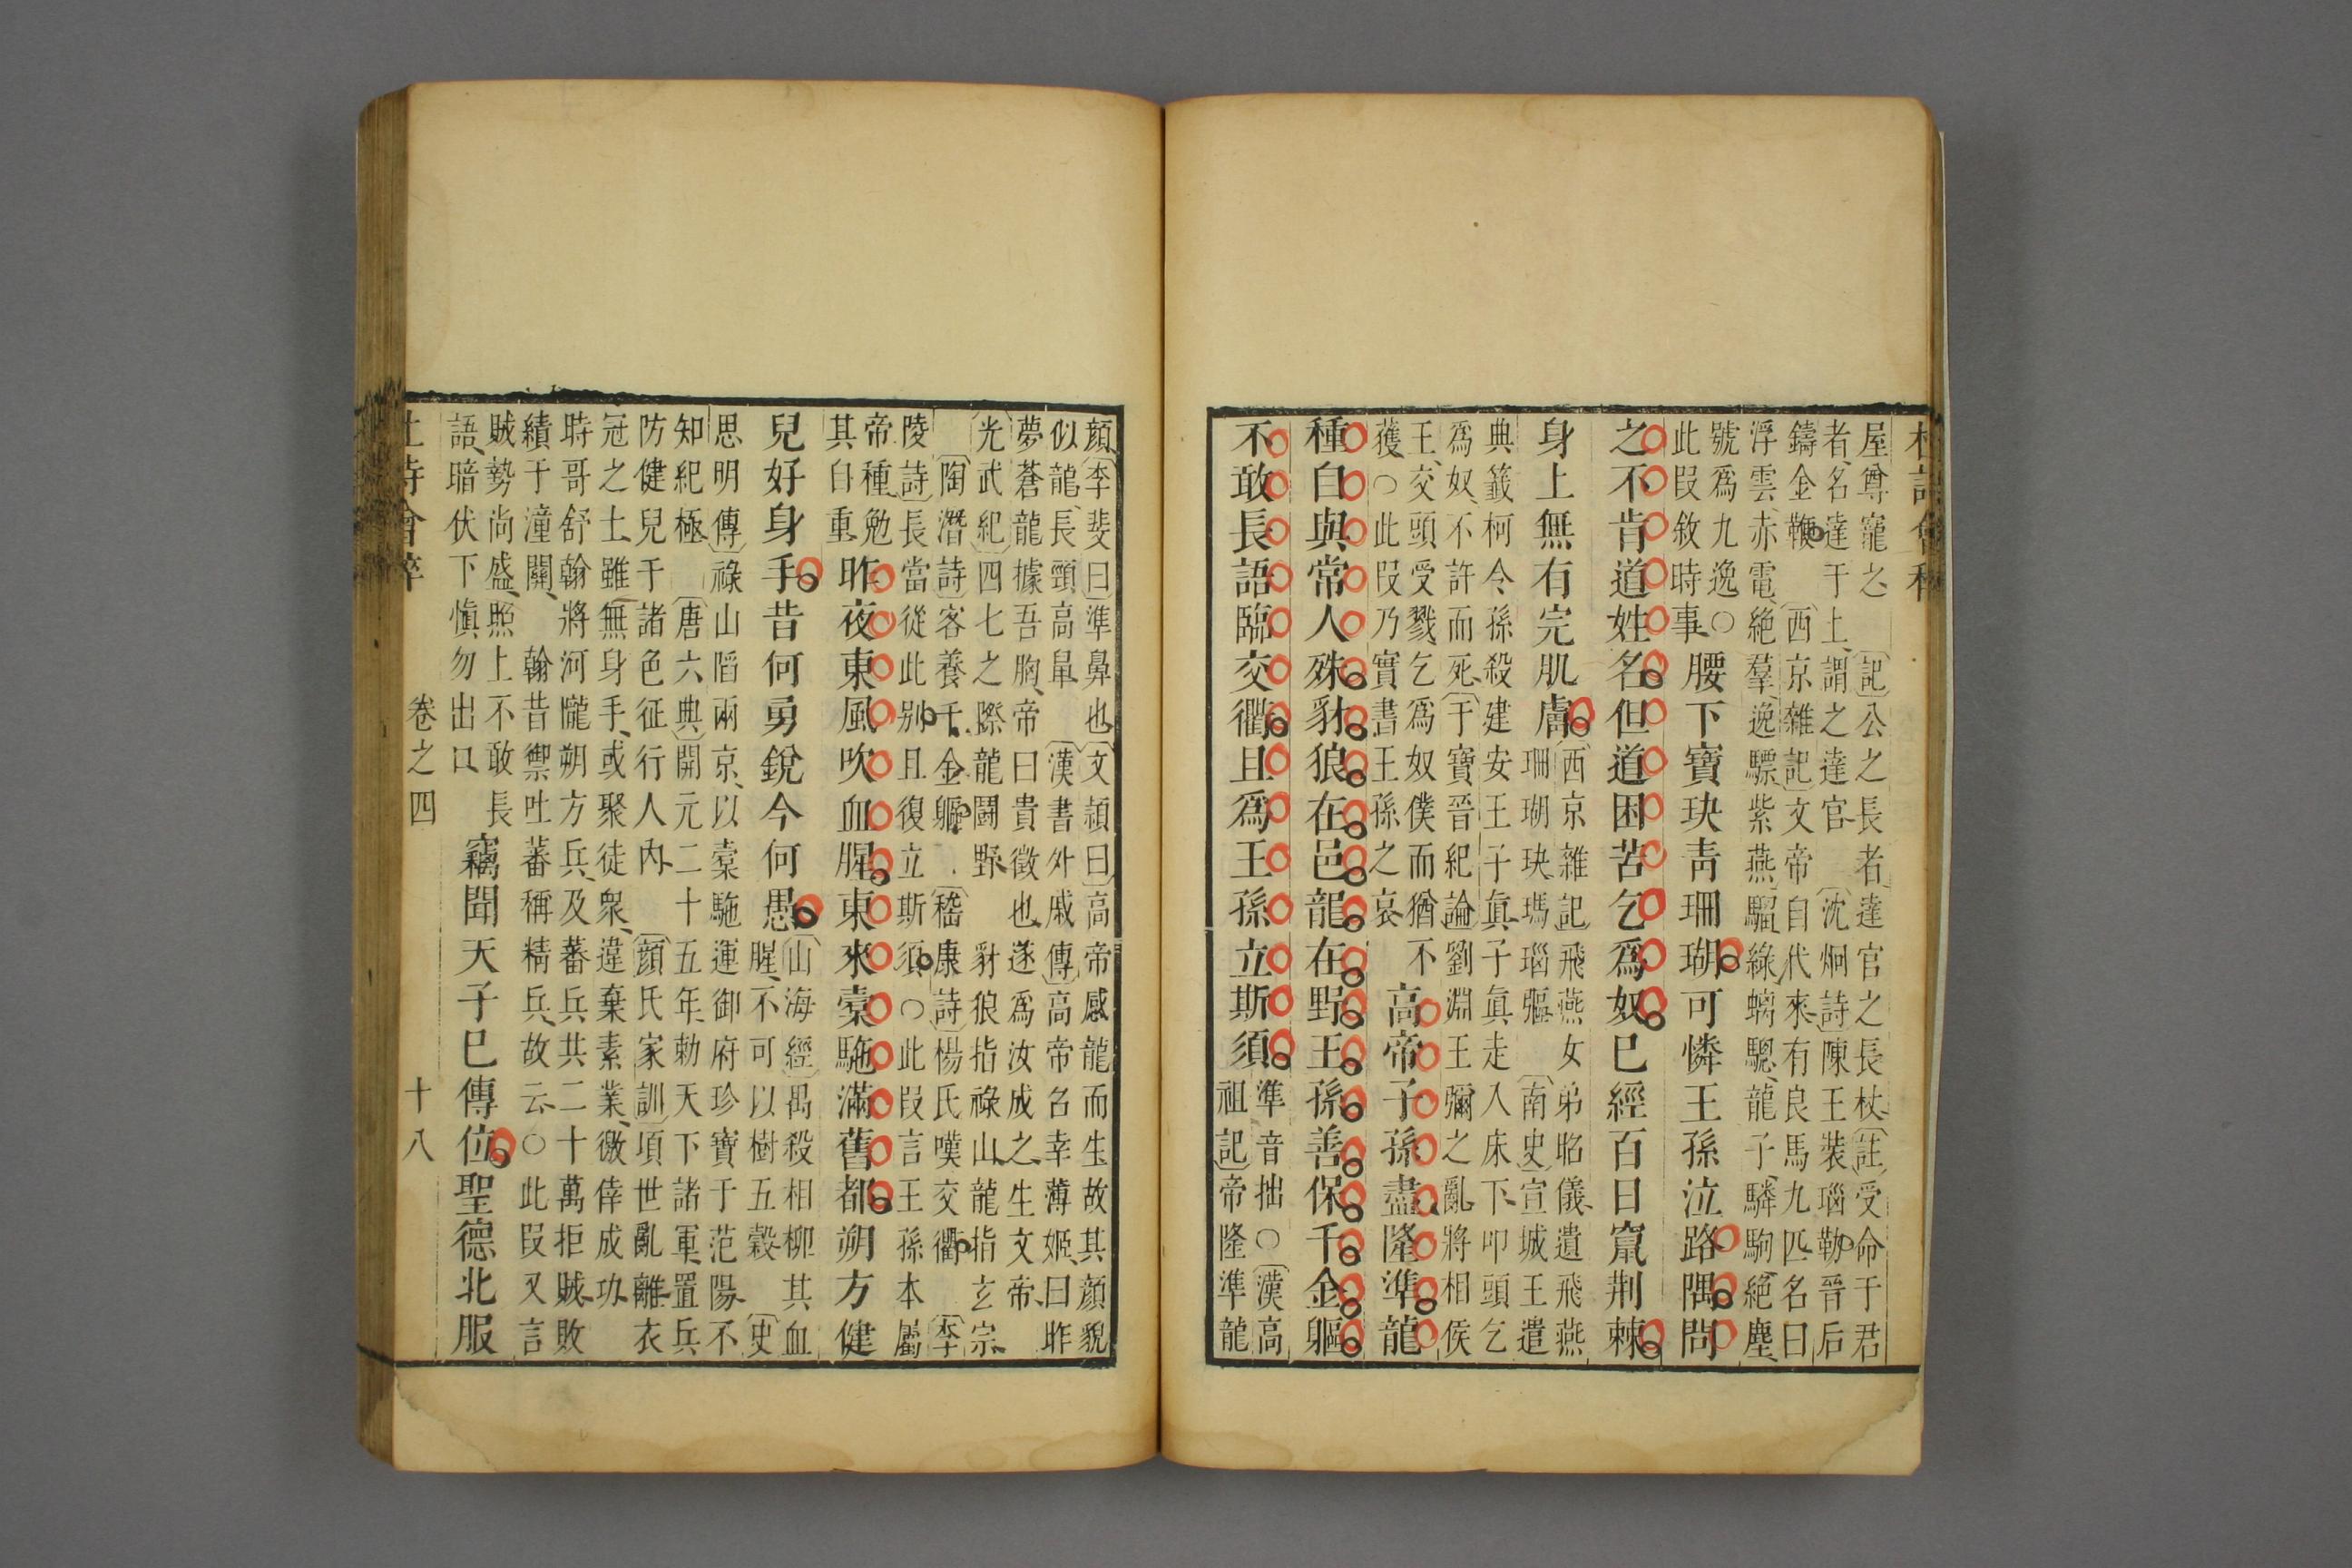 屋尊寵之〔記〕公之長者達官之長杖〔註〕受命于君
者名達于上謂之達官〔沈烱詩〕陳王裝瑙勒晉后
鑄金鞭〔西京雜記〕文帝自代來有良馬九匹名曰
浮雲赤電絕羣逸驃紫燕騮綠螭驄龍子驎駒絕塵
號爲九逸○
此叚敘時事
腰下寶玦青珊瑚可憐王孫泣路隅問
之不肯道姓名但道困苦乞爲奴已經百日竄荆棘
身上無有完肌膚
〔西京雜記〕飛燕女弟昭儀遺飛燕
珊瑚玦瑪瑙彄〔南史〕宣城王遣
典籖柯令孫殺建安王子眞子眞走入床下叩頭乞
爲奴不許而死〔于寶晉紀論〕劉淵王彌之亂將相侯
王交頭受戮乞爲奴僕而猶不
獲○此叚乃實書王孫之哀
高帝子孫盡隆準龍
種自與常人殊豺狼在邑龍在野王孫善保千金軀
不敢長語臨交衢且爲王孫立斯須
準音拙○〔漢高
祖記〕帝隆準龍
顔〔李斐曰〕準鼻也〔文頴曰〕高帝感龍而生故其顔貌
似龍長頸高鼻〔漢書外戚傳〕高帝名幸薄姬曰昨
夢蒼龍據吾胸帝曰貴徵也遂爲汝成之生文帝
〔光武紀〕四七之際龍鬭野豺狼指祿山龍指玄宗
〔陶潛詩〕客養千金軀〔嵇康詩〕楊氏嘆交衢〔李
陵詩〕長當從此别且復立斯須○此叚言王孫本屬
帝種勉
其自重
昨夜東風吹血腥東來槖駞滿舊都朔方健
兒好身手昔何勇銳今何愚
〔山海經〕禺殺相柳其血
腥不可以樹五穀〔史
思明傳〕祿山陷兩京以槖駞運御府珍寶于范陽不
知紀極〔唐六典〕開元二十五年勅天下諸軍置兵
防健兒于諸色征行人内〔顔氏家訓〕項世亂離衣
冠之士雖無身手或聚徒衆違棄素業徼倖成功
時哥舒翰將河隴朔方兵及蕃兵共二十萬拒賊敗
績于潼關翰昔禦吐蕃稱精兵故云○此叚又言
賊勢尚盛照上不敢長
語暗伏下愼勿出口
竊聞天子已傳位聖德北服
卷之四 十八